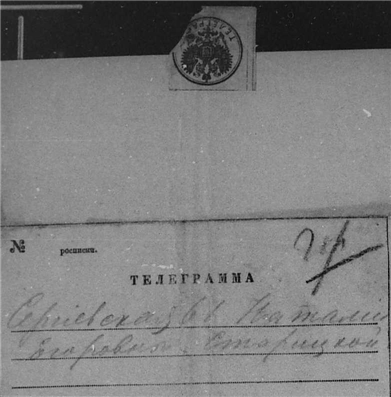 № росписки.
ТЕЛЕГРАММА
Сергіевская 61 Наталіи
Егоровнѣ Старицкой